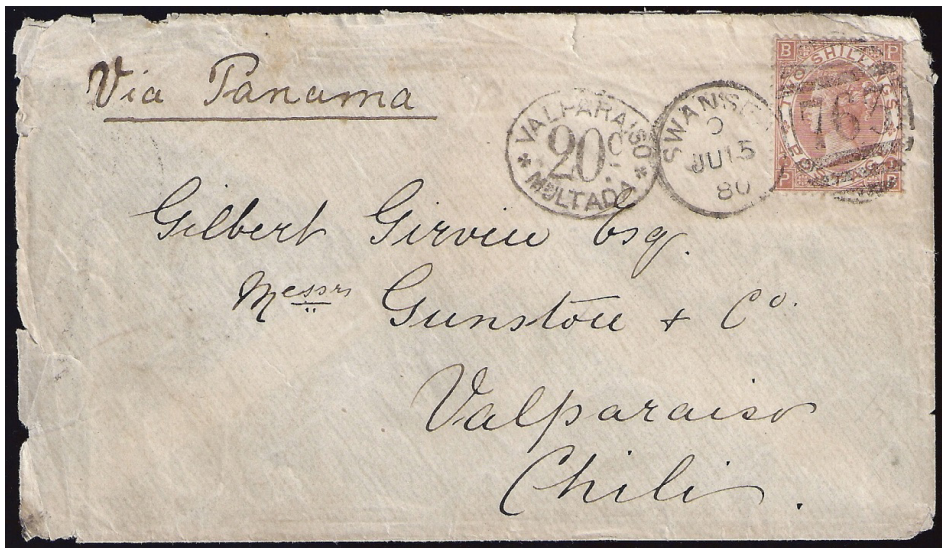 Via Panama
VALPARAISO
20c
MULTADA
SWANSE
JU 15
80
B P
TWO SHILLINGS
763
P
Gilbert Girven Esq.
Messrs Gunston + Co.
Valparaiso
Chili.